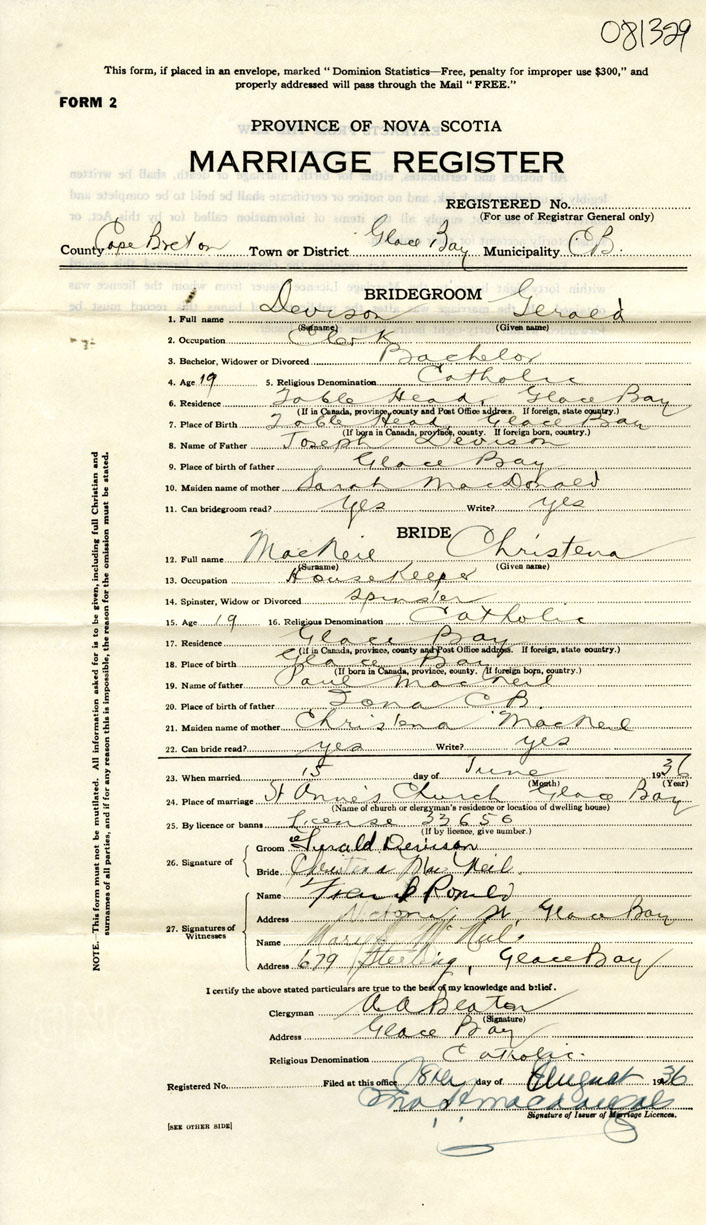 081329
This form, if placed in an envelope, marked "Dominion Statistics—Free, penalty for improper use $300," and
properly addressed will pass through the Mail "FREE."
FORM 2
PROVINCE OF NOVA SCOTIA
MARRIAGE REGISTER
REGISTERED No.
(For use of Registrar General only)
County Cape Breton Town or District Glace Bay Municipality C.B.
BRIDEGROOM
1. Full name Devison Gerald
(Surname) (Given name)
2. Occupation Clerk
3. Bachelor, Widower or Divorced Bachelor
4. Age 19 5. Religious Denomination Catholic
6. Residence Table Head, Glace Bay
(If in Canada, province, county and Post Office address. If foreign, state country.)
7. Place of Birth Table Head, Glace Bay
(If born in Canada, province, county. If foreign born, country.)
8. Name of Father Joseph Devison
9. Place of birth of father Glace Bay
10. Maiden name of mother Sarah MacDonald
11. Can bridegroom read? Yes Write? yes
BRIDE
12. Full name MacNeil Christena
(Surname) (Given name)
13. Occupation HouseKeeper
14. Spinster, Widow or Divorced spinster
15. Age 19 16. Religious Denomination Catholic
17. Residence Glace Bay
(If in Canada, province, county and Post Office address. If foreign, state country.)
18. Place of birth Glace Bay
(If born in Canada, province, county. If foreign born, country.)
19. Name of father Paul MacNeil
20. Place of birth of father Iona C.B.
21. Maiden name of mother Christena MacNeil
22. Can bride read? yes Write? yes
23. When married 15 day of June 1936
(Month) (Year)
24. Place of marriage St Anne's Church Glace Bay
(Name of church or clergyman's residence or location of dwelling house)
25. By licence or banns License 33656
(If by licence, give number.)
26. Signature of Groom Gerald Devison
Bride Christena MacNeil
27. Signatures of Witnesses Name Frank Romeo
Address St, Glace Bay
Name Mary McNeil
Address 679 Sterling, Glace Bay
I certify the above stated particulars are true to the best of my knowledge and belief.
Clergyman A A Beaton
(Signature)
Address Glace Bay
Religious Denomination Catholic.
Registered No. Filed at this office 18th day of August 1936
Signature of Issuer of Marriage Licences.
[SEE OTHER SIDE]
NOTE.—This form must not be mutilated. All information asked for is to be given, including full Christian and
surnames of all parties, and if for any reason this is impossible, the reason for the omission must be stated.